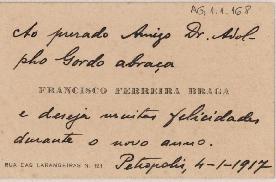 AG, 1.1.168
Ao prezado Amigo Dr. Adol-
pho Gordo abraça
FRANCISCO FERREIRA BRAGA
e deseja muitas felicidades
durante o novo anno.
RUA DAS LARANGEIRAS N. 121
Petropolis, 4-1-1917